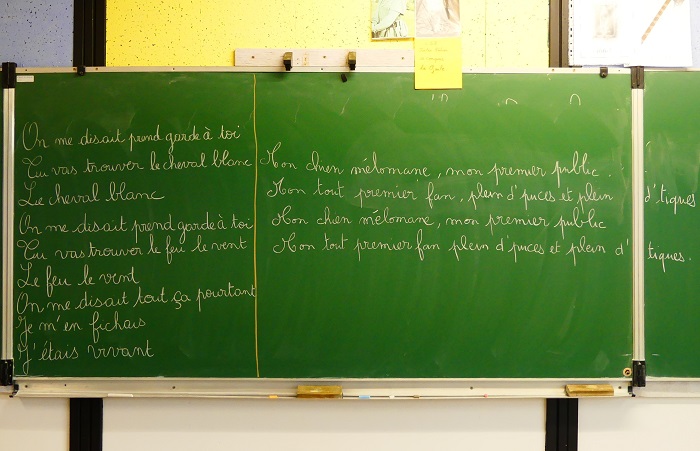 On me disait prend garde à toi
Tu vas trouver le cheval blanc
Le cheval blanc
On me disait prend garde à toi
Tu vas trouver le feu le vent
Le feu le vent
On me disait tout ça pourtant
Je m'en fichais
J'étais vivant
Mon chien mélomane, mon premier public.
Mon tout premier fan, plein d'puces et plein d'tiques
Mon chien mélomane, mon premier public
Mon tout premier fan plein d'puces et plein d'tiques.